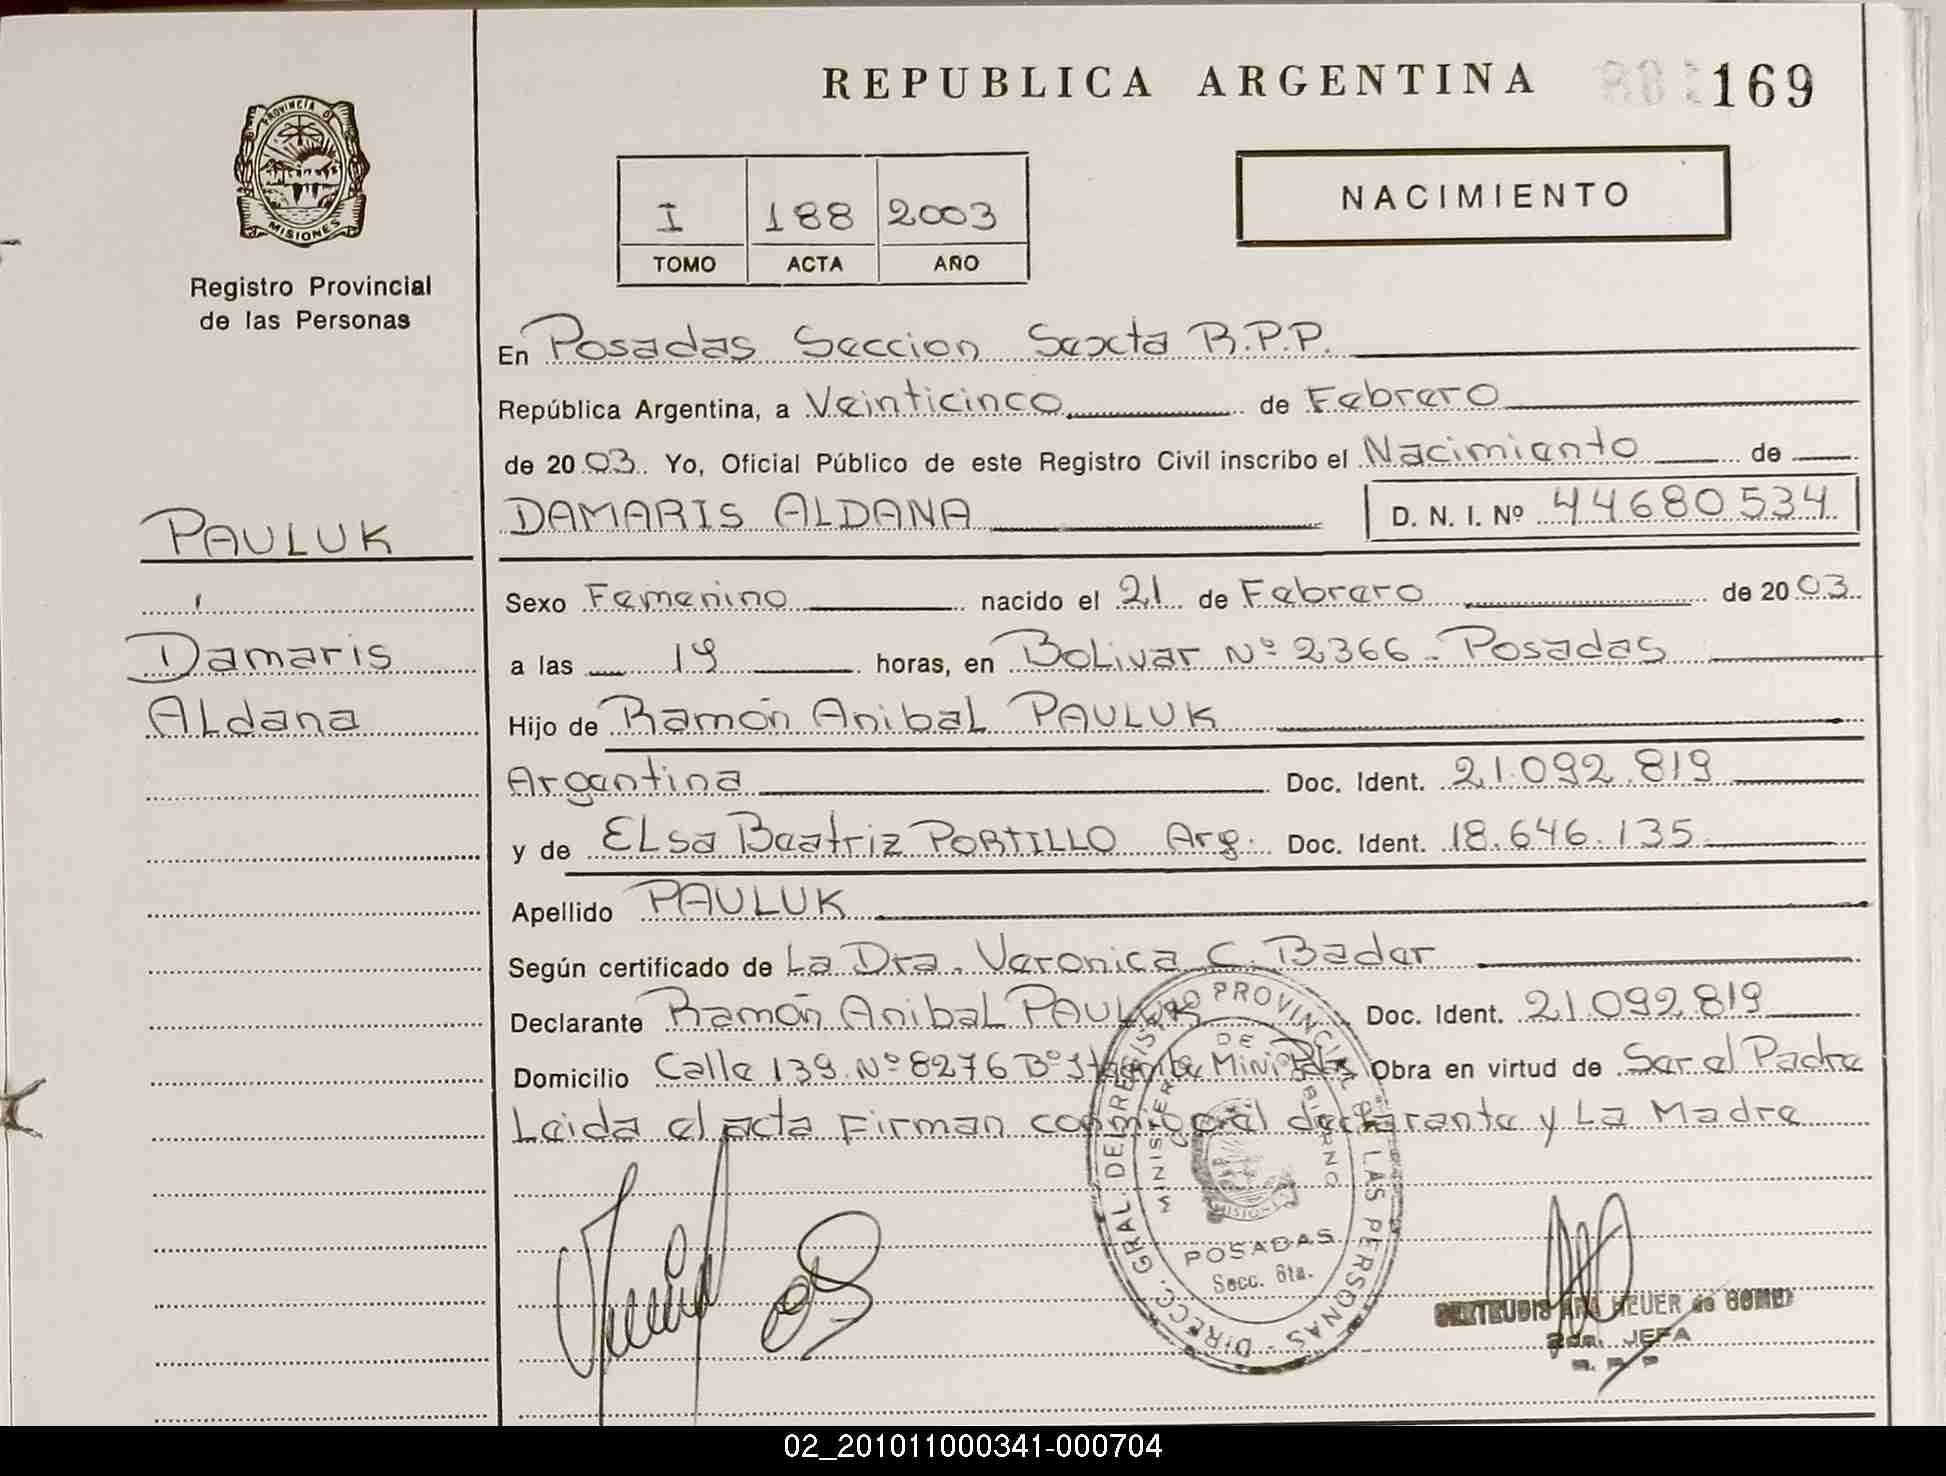 REPUBLICA ARGENTINA
169
PROVINCIA DE MISIONES
Registro Provincial
de las Personas
I 188 2003
TOMO ACTA AÑO
NACIMIENTO
En Posadas Seccion Sexta R.P.P.
República Argentina, a Veinticinco de Febrero
de 2003. Yo, Oficial Público de este Registro Civil inscribo el Nacimiento de
DAMARIS ALDANA D. N. I. Nº 44680534
PAULUK
Damaris
Aldana
Sexo Femenino nacido el 21 de Febrero de 2003
a las 19 horas, en Bolivar Nº 2366 - Posadas
Hijo de Ramón Anibal PAULUK
Argentina Doc. Ident. 21.092.819
y de ELsa Beatriz PORTILLO Arg. Doc. Ident. 18.646.135
Apellido PAULUK
Según certificado de La Dra. Veronica C. Bader
Declarante Ramón Anibal PAULUK Doc. Ident. 21.092.819
Domicilio Calle 139 Nº 8276 Bº Obra en virtud de Ser el Padre
Leida el acta Firman conmigo el declarante y La Madre
DIRECC. GRAL. DEL REGISTRO PROVINCIAL DE LAS PERSONAS
MINISTERIO DE GOBIERNO
MISIONES
POSADAS
Secc. 6ta.
HEUER de
2da. JEFA
02_201011000341-000704